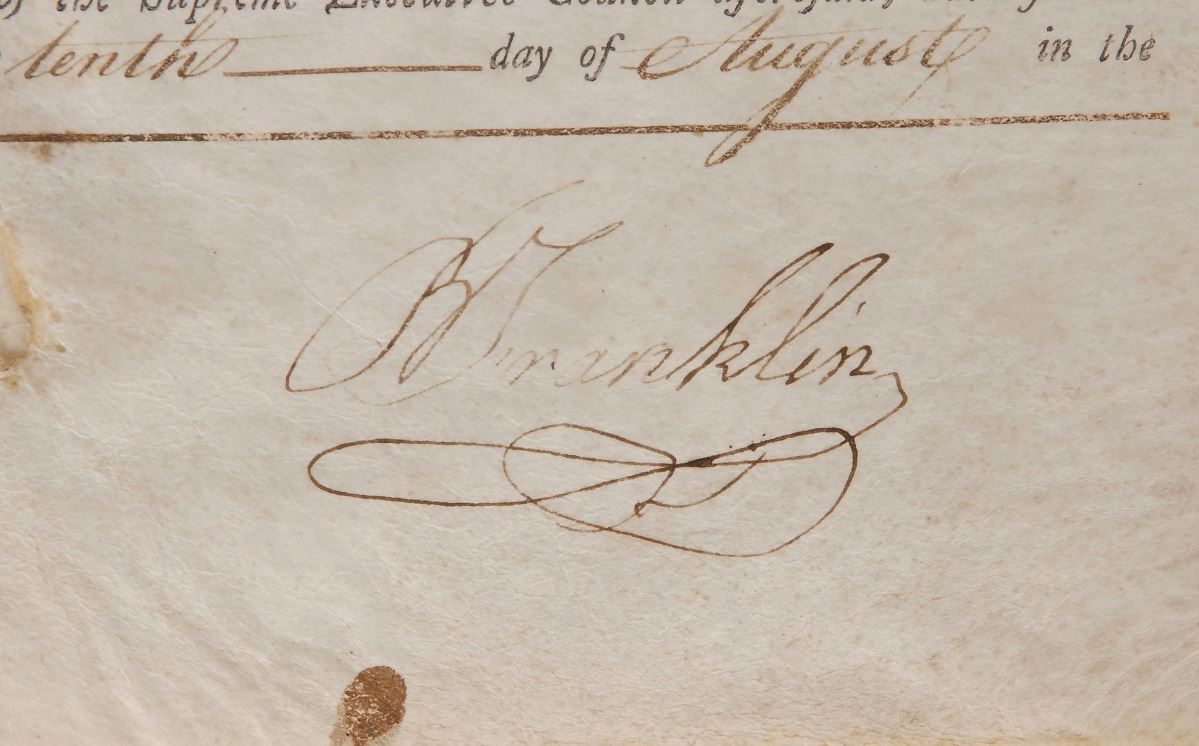 of the Supreme Executive Council aforesaid,
tenth day of August in the
B Franklin